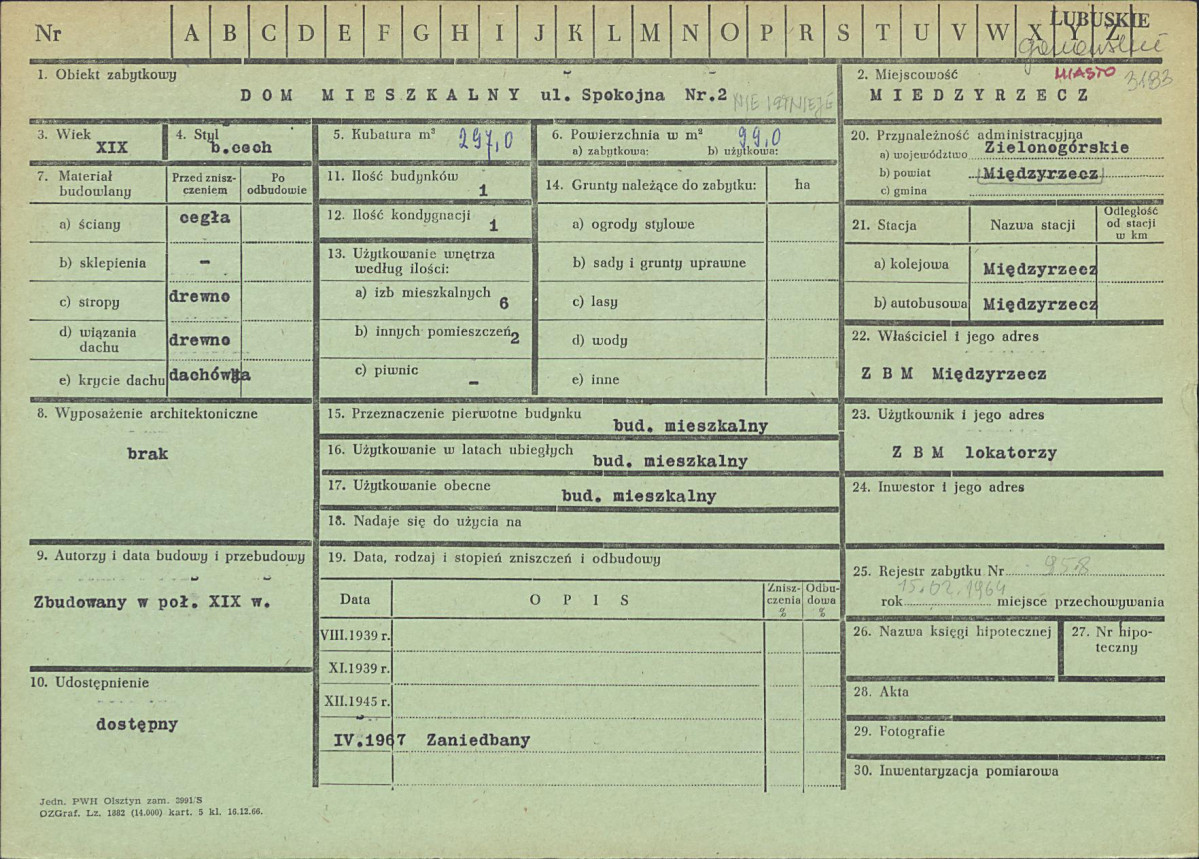 Nr A B C D E F G H I J K L M N O P R S T U V W X Y Z
LUBUSKIE
1. Obiekt zabytkowy
DOM MIESZKALNY ul. Spokojna Nr.2 NIE ISTNIEJE
2. Miejscowość MIASTO 3183
MIEDZYRZECZ
3. Wiek
XIX
4. Styl
b.cech
5. Kubatura m³ 297,0
6. Powierzchnia w m² 99,0
a) zabytkowa: b) użytkowa:
7. Materiał budowlany
Przed zniszczeniem
Po odbudowie
a) ściany cegła
b) sklepienia -
c) stropy drewno
d) wiązania dachu drewno
e) krycie dachu dachówka
8. Wyposażenie architektoniczne
brak
9. Autorzy i data budowy i przebudowy
Zbudowany w poł. XIX w.
10. Udostępnienie
dostępny
11. Ilość budynków 1
12. Ilość kondygnacji 1
13. Użytkowanie wnętrza według ilości:
a) izb mieszkalnych 6
b) innych pomieszczeń 2
c) piwnic -
14. Grunty należące do zabytku: ha
a) ogrody stylowe
b) sady i grunty uprawne
c) lasy
d) wody
e) inne
15. Przeznaczenie pierwotne budynku
bud. mieszkalny
16. Użytkowanie w latach ubiegłych
bud. mieszkalny
17. Użytkowanie obecne
bud. mieszkalny
18. Nadaje się do użycia na
19. Data, rodzaj i stopień zniszczeń i odbudowy
Data OPIS Zniszczenia % Odbudowa %
VIII.1939 r.
XI.1939 r.
XII.1945 r.
IV.1967 Zaniedbany
20. Przynależność administracyjna
a) województwo Zielonogórskie
b) powiat Międzyrzecz
c) gmina
21. Stacja Nazwa stacji Odległość od stacji w km
a) kolejowa Międzyrzecz
b) autobusowa Międzyrzecz
22. Właściciel i jego adres
Z B M Międzyrzecz
23. Użytkownik i jego adres
Z B M lokatorzy
24. Inwestor i jego adres
25. Rejestr zabytku Nr 958
15.02.1964
rok miejsce przechowywania
26. Nazwa księgi hipotecznej
27. Nr hipoteczny
28. Akta
29. Fotografie
30. Inwentaryzacja pomiarowa
Jedn. PWH Olsztyn zam. 3991/S
OZGraf. Lz. 1882 (14.000) kart. 5 kl. 16.12.66.